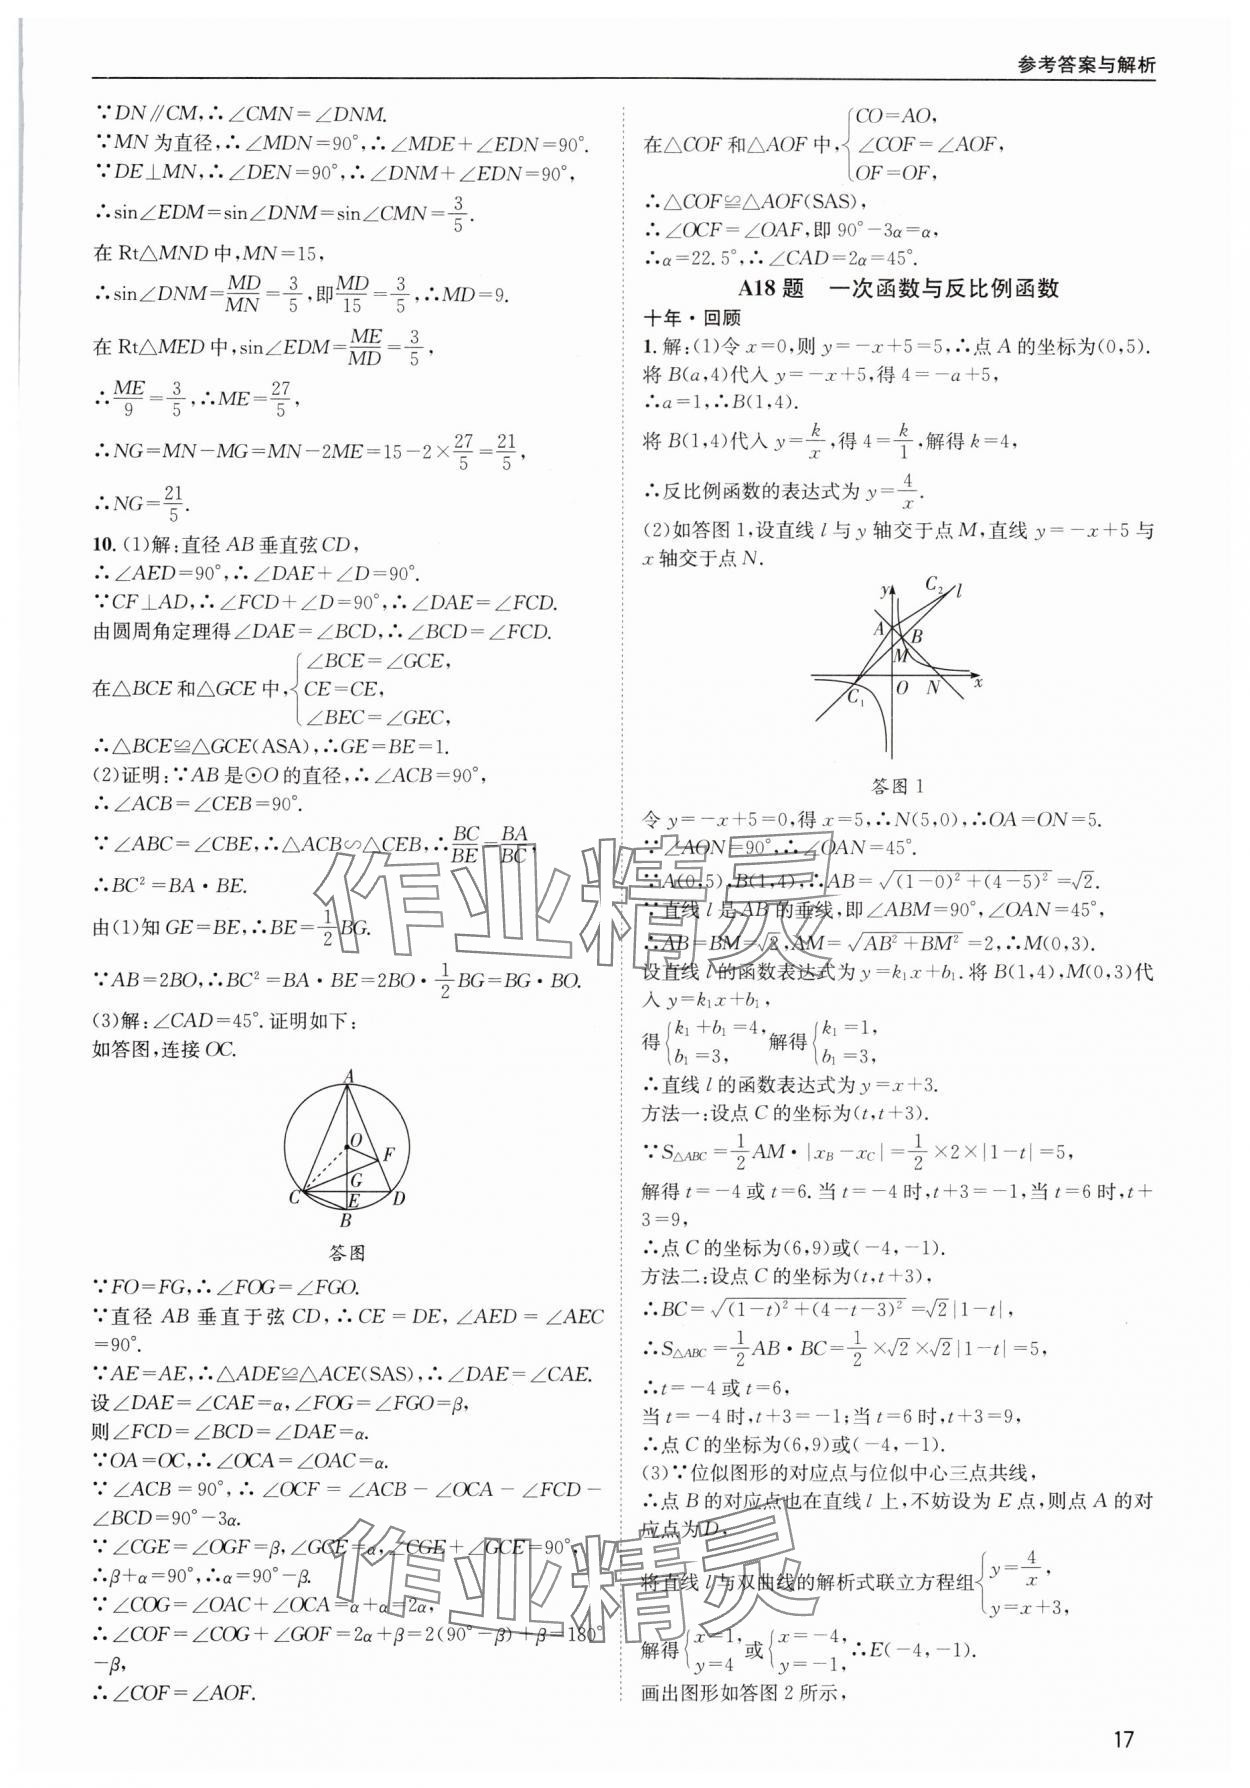 参考答案与解析
∵DN∥CM,∴∠CMN=∠DNM.
∵MN为直径,∴∠MDN=90°,∴∠MDE+∠EDN=90°.
∵DE⊥MN,∴∠DEN=90°,∴∠DNM+∠EDN=90°,
∴sin∠EDM=sin∠DNM=sin∠CMN=3/5.
在Rt△MND中,MN=15,
∴sin∠DNM=MD/MN=3/5,即MD/15=3/5,∴MD=9.
在Rt△MED中,sin∠EDM=ME/MD=3/5,
∴ME/9=3/5,∴ME=27/5,
∴NG=MN-MG=MN-2ME=15-2×27/5=21/5,
∴NG=21/5.
10.(1)解:直径AB垂直弦CD,
∴∠AED=90°,∴∠DAE+∠D=90°.
∵CF⊥AD,∴∠FCD+∠D=90°,∴∠DAE=∠FCD.
由圆周角定理得∠DAE=∠BCD,∴∠BCD=∠FCD.
在△BCE和△GCE中,{∠BCE=∠GCE,
CE=CE,
∠BEC=∠GEC,
∴△BCE≌△GCE(ASA),∴GE=BE=1.
(2)证明:∵AB是⊙O的直径,∴∠ACB=90°,
∴∠ACB=∠CEB=90°.
∵∠ABC=∠CBE,∴△ACB∽△CEB,∴BC/BE=BA/BC,
∴BC²=BA·BE.
由(1)知GE=BE,∴BE=1/2BG.
∵AB=2BO,∴BC²=BA·BE=2BO·1/2BG=BG·BO.
(3)解:∠CAD=45°.证明如下:
如答图,连接OC.
A
O
F
G
C
E
D
B
答图
∵FO=FG,∴∠FOG=∠FGO.
∵直径AB垂直于弦CD,∴CE=DE,∠AED=∠AEC
=90°.
∵AE=AE,∴△ADE≌△ACE(SAS),∴∠DAE=∠CAE.
设∠DAE=∠CAE=α,∠FOG=∠FGO=β,
则∠FCD=∠BCD=∠DAE=α.
∵OA=OC,∴∠OCA=∠OAC=α.
∵∠ACB=90°,∴∠OCF=∠ACB-∠OCA-∠FCD-
∠BCD=90°-3α.
∵∠CGE=∠OGF=β,∠GCE=α,∠CGE+∠GCE=90°,
∴β+α=90°,∴α=90°-β.
∵∠COG=∠OAC+∠OCA=α+α=2α,
∴∠COF=∠COG+∠GOF=2α+β=2(90°-β)+β=180°
-β,
∴∠COF=∠AOF.
在△COF和△AOF中,{CO=AO,
∠COF=∠AOF,
OF=OF,
∴△COF≌△AOF(SAS),
∴∠OCF=∠OAF,即90°-3α=α,
∴α=22.5°,∴∠CAD=2α=45°.
A18题 一次函数与反比例函数
十年·回顾
1.解:(1)令x=0,则y=-x+5=5,∴点A的坐标为(0,5).
将B(a,4)代入y=-x+5,得4=-a+5,
∴a=1,∴B(1,4).
将B(1,4)代入y=k/x,得4=k/1,解得k=4,
∴反比例函数的表达式为y=4/x.
(2)如答图1,设直线l与y轴交于点M,直线y=-x+5与
x轴交于点N.
y
C₂
l
A
B
M
C₁
O
N
x
答图1
令y=-x+5=0,得x=5,∴N(5,0),∴OA=ON=5.
∵∠AON=90°,∴∠OAN=45°.
∵A(0,5),B(1,4),∴AB=√((1-0)²+(4-5)²)=√2.
∵直线l是AB的垂线,即∠ABM=90°,∠OAN=45°,
∴AB=BM=√2,AM=√(AB²+BM²)=2,∴M(0,3).
设直线l的函数表达式为y=k₁x+b₁.将B(1,4),M(0,3)代
入y=k₁x+b₁,
得{k₁+b₁=4, b₁=3, 解得{k₁=1, b₁=3,
∴直线l的函数表达式为y=x+3.
方法一:设点C的坐标为(t,t+3).
∵S△ABC=1/2AM·|x_B-x_C|=1/2×2×|1-t|=5,
解得t=-4或t=6.当t=-4时,t+3=-1,当t=6时,t+
3=9,
∴点C的坐标为(6,9)或(-4,-1).
方法二:设点C的坐标为(t,t+3),
∴BC=√((1-t)²+(4-t-3)²)=√2|1-t|,
∴S△ABC=1/2AB·BC=1/2×√2×√2|1-t|=5,
∴t=-4或t=6,
当t=-4时,t+3=-1;当t=6时,t+3=9,
∴点C的坐标为(6,9)或(-4,-1).
(3)∵位似图形的对应点与位似中心三点共线,
∴点B的对应点也在直线l上,不妨设为E点,则点A的对
应点为D,
将直线l与双曲线的解析式联立方程组{y=4/x, y=x+3,
解得{x=1, y=4 或{x=-4, y=-1, ∴E(-4,-1).
画出图形如答图2所示,
作业精灵
作业精灵
17